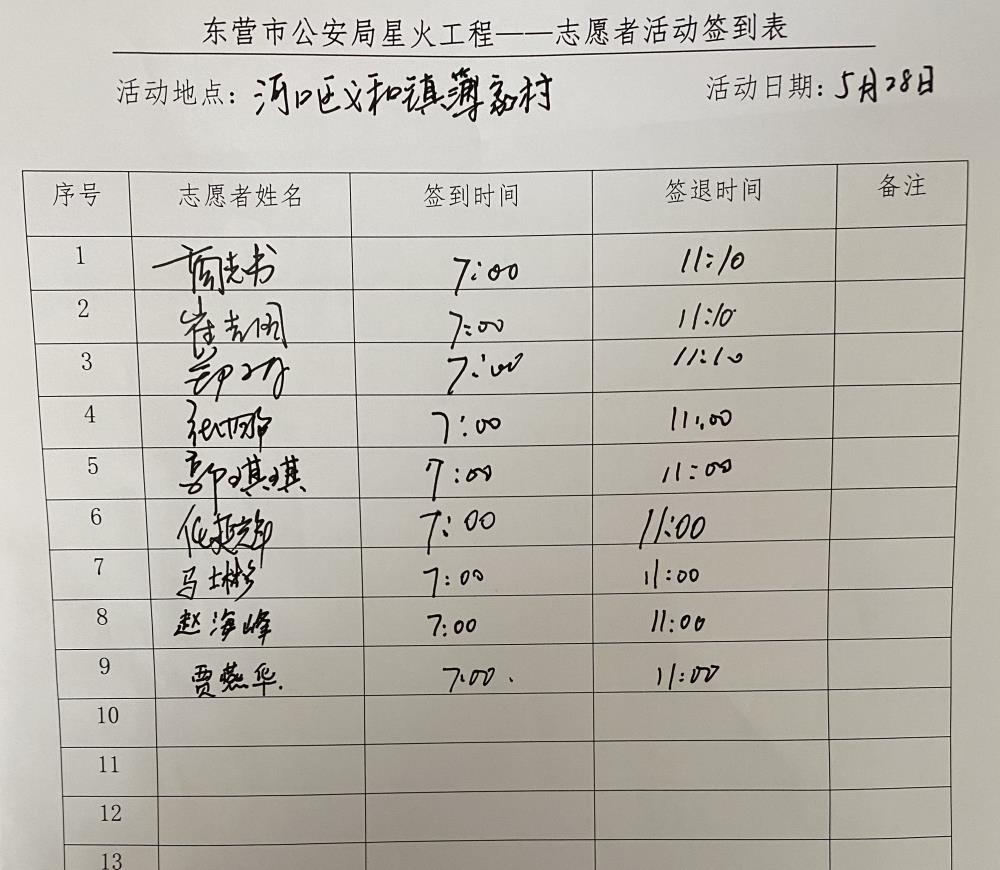 东营市公安局星火工程——志愿者活动签到表
活动地点：河口区义和镇薄家村 活动日期：5月28日
序号 志愿者姓名 签到时间 签退时间 备注
1 7:00 11:10
2 崔 7:00 11:10
3 7:00 11:10
4 7:00 11:00
5 郭琪琪 7:00 11:00
6 任延辉 7:00 11:00
7 马士彬 7:00 11:00
8 赵海峰 7:00 11:00
9 贾燕华. 7:00. 11:00
10
11
12
13